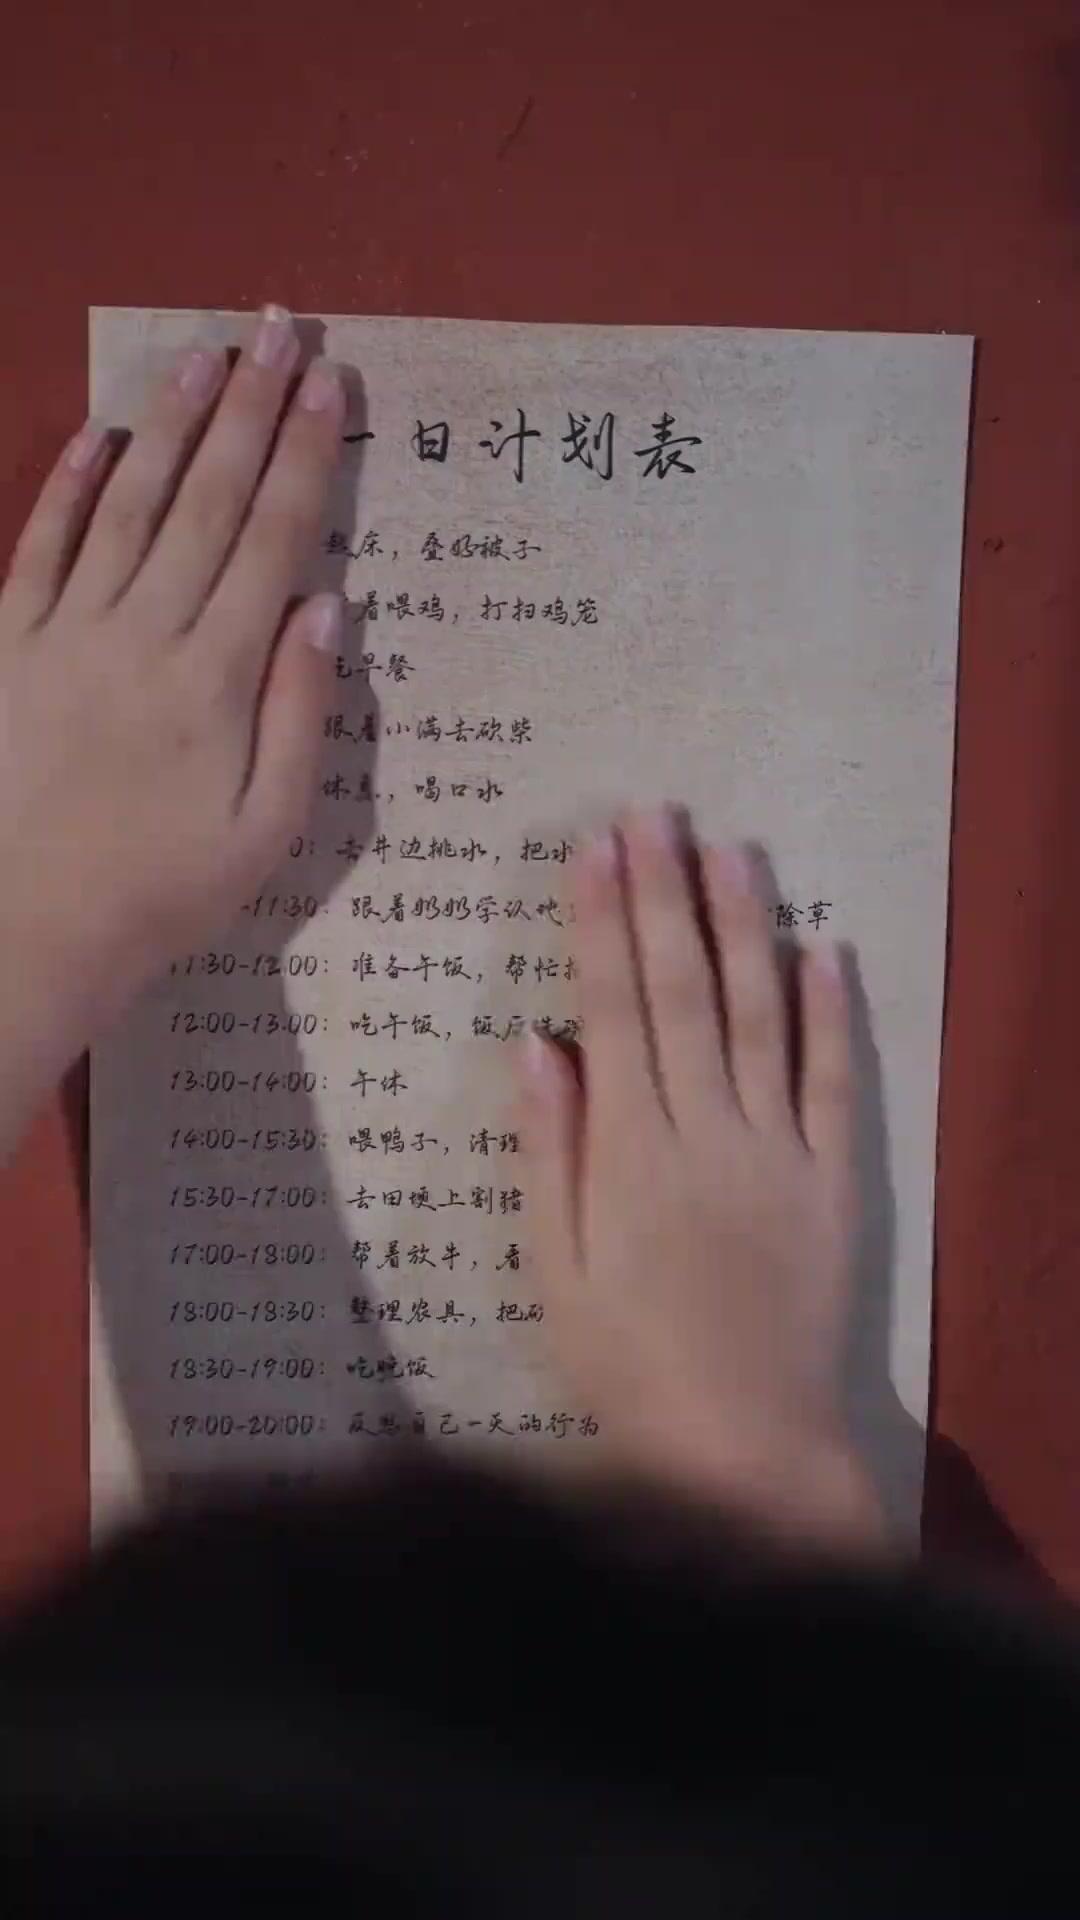 一日计划表
床，叠好被子
着喂鸡，打扫鸡笼
吃早餐
跟着小满去砍柴
休息，喝口水
0：去井边挑水，把水
-11:30：跟着奶奶学认 除草
11:30-12:00：准备午饭，帮忙
12:00-13:00：吃午饭，饭后洗
13:00-14:00：午休
14:00-15:30：喂鸭子，清理
15:30-17:00：去田埂上割猪
17:00-18:00：帮着放牛，看
18:00-18:30：整理农具，把
18:30-19:00：吃晚饭
19:00-20:00：反思自己一天的行为